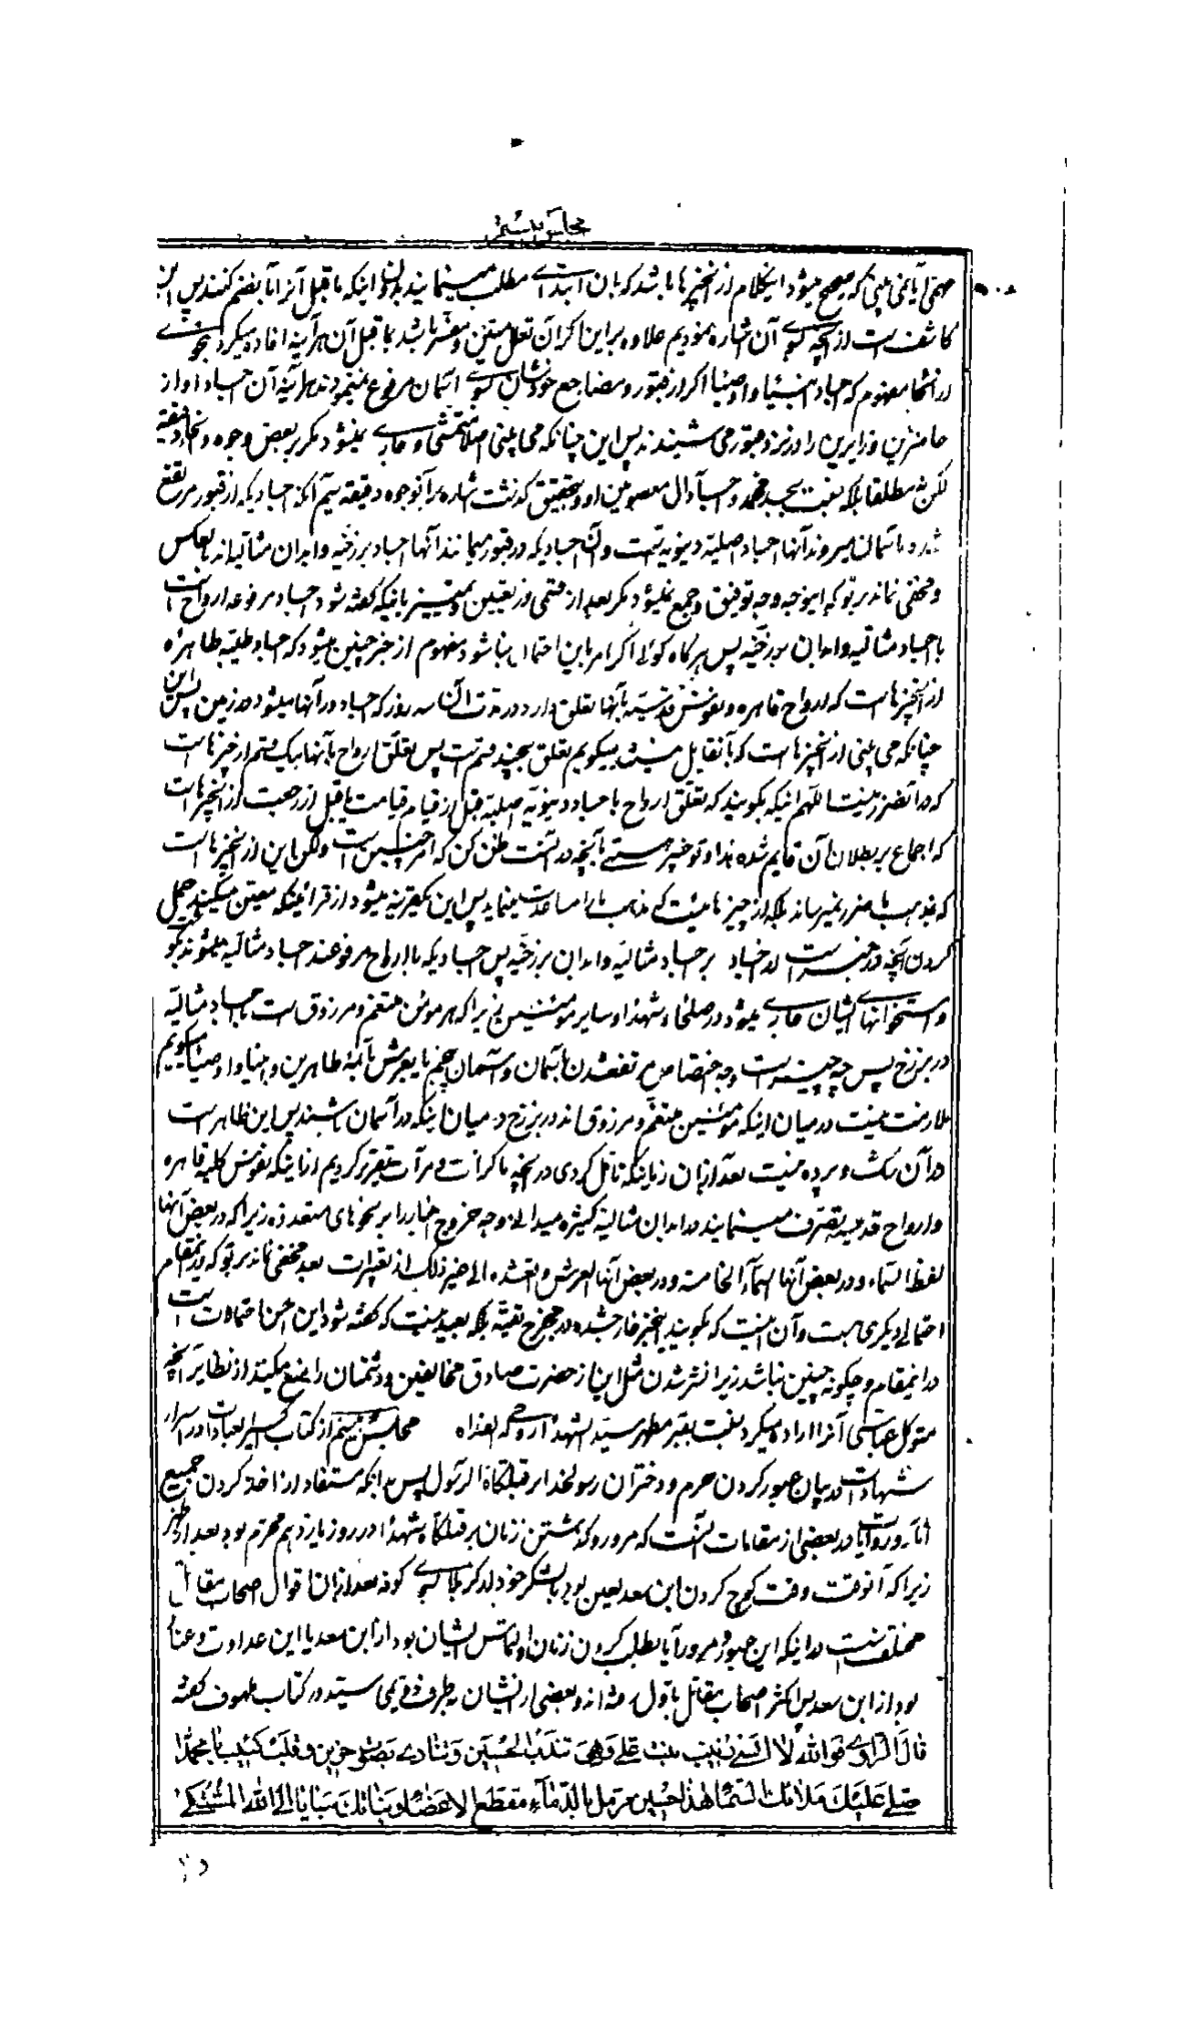 مجلس بیستم
مهمی آیا نمی بینی که صحیح میشود اینکلام از آنچیزها باشد که بان ابتدای مطلب مینمایند بدون اینکه ماقبل آنرا بآن ضم کنند پس این
کاشف است از آنچه بسوی آن اشاره نمودیم علاوه براین اگر آن تعلیل متقین و مفسر باشد بماقبل آن هرآینه افاده میکرد بنحوی
در انجا مفهوم که اجساد انبیا و اوصیا اگر از قبور و مضاجع خودشان بسوی آسمان مرفوع نمیبودند هرآینه آن اجساد اواز
حاضرین و زایرین را در نزد قبور می شنیدند پس این چنانکه می بینی اصلا متمشی و جاری نمیشود مگر بر بعض وجوه
لکن نه مطلقا بلکه نسبت بجسد محمد و اجساد آل معصومین او و بتحقیق که گذشت اشاره بر آنوجوه دقیقه ستیم آنکه اجسادیکه از قبور مرتفع
شده و باسمان میروند آنها اجساد اصلیه دنیویه است و آن اجسادیکه در قبور میمانند آنها اجساد برزخیه و ابدان مثالیه اند بعکس
و مخفی نماند بر تو که اینوجه وجه توفیق و جمع نمیشود مگر بعد از قسمی از تعیین و تمییز باینکه گفته شود اجساد مرفوعه ارواح است
با اجساد مثالیه و ابدان برزخیه پس هرگاه گوئی اگر امر این احتمال بنا شود مفهوم از خبر چنین میشود که اجساد طیبه طاهره
از آنچیزهاست که ارواح قاهره و نفوس قدسیه بآنها تعلق دارد در مدت آن سه روز که اجساد در آنها میشود در زمین پس این
چنانکه می بینی از آنچیزهاست که بآن قایل نیست میگویم تعلق بچند قسم است پس تعلق ارواح بآنها بیک قسم از چیزهاست
که در آن ضرر نیست اللهم اینکه بگویند که تعلق ارواح باجساد دنیویه اصلیه قبل از قیام قیامت یا قبل از رجعت از آنچیزهاست
که اجماع بر بطلان آن قایم شده نداد تو خبیر هستی بآنچه در آنست ظن کن که امر چنین است ولکن این از آنچیزهاست
که بمذهب ما ضرر نمیرساند بلکه از چیزهائیست که مذهب ما را مساعدت مینماید پس این یکقرینه میشود از قراینیکه معین میکنند حمل
کردن آنچه در خبر است از اجساد بر اجساد مثالیه و ابدان برزخیه پس اجسادیکه با ارواح مرفوعند اجساد مثالیه میشوند بگو
و استخوانهای ایشان جاری میشود در صلحا و شهدا و سایر مؤمنین نیز زیرا که هر مؤمن متنعم و مرزوق است باجساد مثالیه
در برزخ پس چه چیز است وجه اختصاص مرتفع شدن باسمان و آسمان پنجم یا بعرش بائمه طاهرین و انبیا و اوصیا میگویم
ملازمت نیست در میان اینکه مؤمنین متنعم و مرزوق اند در برزخ و میان اینکه در آسمان باشند پس این ظاهر است
در آن شک و پرده نیست بعد آزان زمانیکه تامل کردی در آنچه ما کرات و مرات تقریر کردیم از اینکه نفوس کلیه قاهره
و ارواح قدسیه تصرف مینمایند در ابدان مثالیه کثیره میدانی وجه خروج اخبار را بر نحوهای متعدده زیرا که در بعض آنها
لفظ السماء و در بعض آنها السماء الخامسة و در بعض آنها العرش وتفسیده الی غیر ذلک از تعبیرات بعد مخفی نماند بر تو که در اینمقام
احتمالی دیگری هست و آن اینست که بگویند اینخبر خارج شده در مخرج تقیه بلکه بعید نیست که گفته شود این احسن احتمالات است
در اینمقام و چگونه چنین نباشد زیرا نشر شدن مثل این از حضرت صادق مخالفین و دشمنان را منع میکند از نظایر آنچه
متوکل عباسی آنرا اراده میکرد نسبت بقبر مطهر سید الشهدا روحی له الفداه مجلس بیستم از کتاب اکسیر العبادات در اسرار
شهادات در بیان عبور کردن حرم و دختران رسولخدا بر قتلگاه الرسول پس بدانکه مستفاد از اخذ کردن جمیع
آثار و روایات در بعضی از مقامات آنست که مرور و گذشتن زنان بر قتلگاه شهدا در روز یازدهم محرم بود بعد از ظهر
زیرا که آنوقت وقت کوچ کردن ابن سعد لعین بود با لشکر خود از کربلا بسوی کوفه بعد ازان اقوال اصحاب مقاتل
مختلفست در اینکه این عبور و مرور آیا بطلب کردن زنان و التماس ایشان بود از ابن سعد یا این عداوت و عناد
بود از ابن سعد پس اکثر اصحاب مقاتل باقول رفته اند و بعضی از ایشان بطرف دویمی سید در کتاب ملهوف گفته
قال الراوی فوالله لا انسی زینب بنت علی وهی تندب الحسین وتنادی بصوت حزین وقلب کئیب یا محمداه
صلی علیک ملائکة السماء هذا حسین مرمل بالدماء مقطع الاعضاء وبناتک سبایا الی الله المشتکی